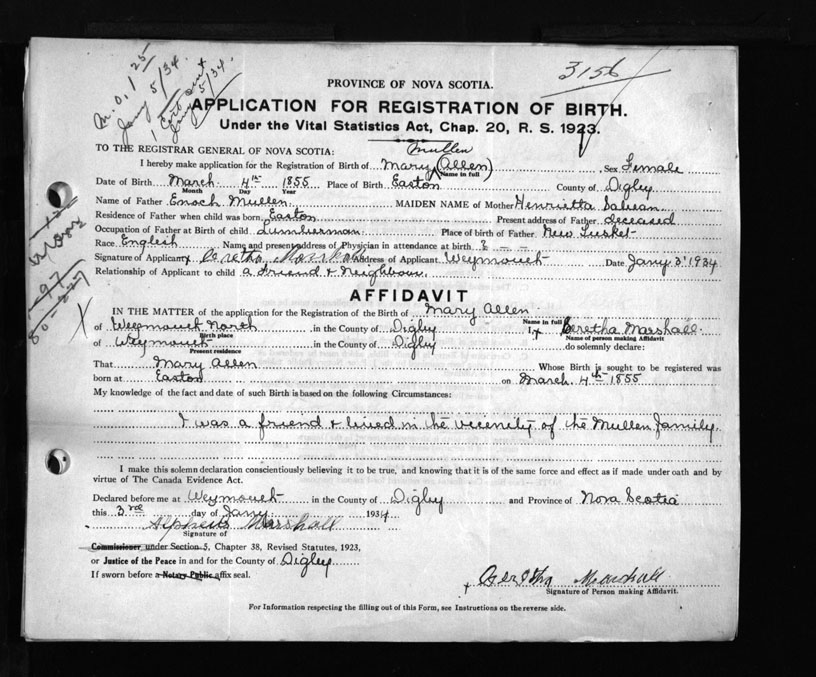 3156
M.O. 1 25
Jany 5/34.
1 Cert sent
Jany 5/34.
PROVINCE OF NOVA SCOTIA.
APPLICATION FOR REGISTRATION OF BIRTH.
Under the Vital Statistics Act, Chap. 20, R. S. 1923.
TO THE REGISTRAR GENERAL OF NOVA SCOTIA:
Mullen
I hereby make application for the Registration of Birth of Mary (Allen) Sex Female
Name in full
Date of Birth March 4th 1855 Place of Birth Easton County of Digby
Month Day Year
Name of Father Enoch Mullen. MAIDEN NAME of Mother Henrietta
Residence of Father when child was born Easton Present address of Father deceased
Occupation of Father at Birth of child Lumberman. Place of birth of Father New Tusket
Race English Name and present address of Physician in attendance at birth ? — —
Signature of Applicant x Beretha Marshall Address of Applicant Weymouth Date Jany 3rd 1934
Relationship of Applicant to child a friend & Neighbour.
AFFIDAVIT
IN THE MATTER of the application for the Registration of the Birth of Mary Allen
Name in full
of Weymouth North in the County of Digby I, x Beretha Marshall.
Birth place Name of person making Affidavit
of Weymouth in the County of Digby do solemnly declare:
Present residence
That Mary Allen Whose Birth is sought to be registered was
born at Easton on March 4th 1855
My knowledge of the fact and date of such Birth is based on the following Circumstances:
I was a friend & lived in the vicenity of the Mullen family.
I make this solemn declaration conscientiously believing it to be true, and knowing that it is of the same force and effect as if made under oath and by
virtue of The Canada Evidence Act.
Declared before me at Weymouth in the County of Digby and Province of Nova Scotia
this 3rd day of Jany 1934
Marshall
Signature of
Commissioner under Section 5, Chapter 38, Revised Statutes, 1923,
or Justice of the Peace in and for the County of Digby
If sworn before a Notary Public affix seal.
x Beretha Marshall
Signature of Person making Affidavit.
For Information respecting the filling out of this Form, see Instructions on the reverse side.